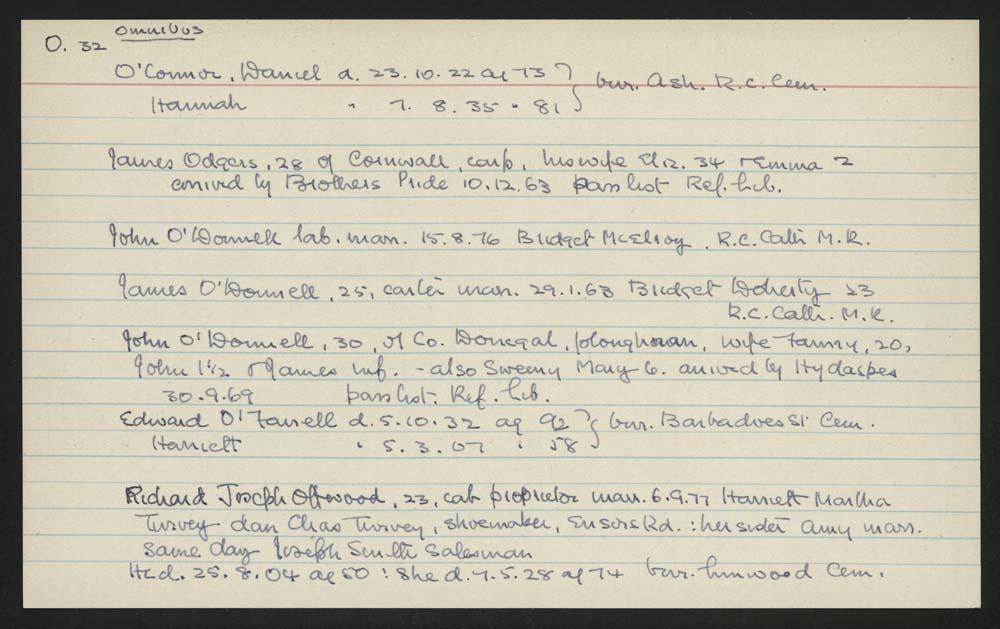 omnibus
O. 32
O'Connor, Daniel d. 23.10.22 ag 73 } bur. Ash. R.C. Cem.
Hannah " 7. 8. 35 " 81
James Odgers, 28 of Cornwall, carp, his wife Eliz. 34 + Emma 2
arrived by Brothers Pride 10.12.63 pass list Ref. Lib.
John O'Donnell lab. marr. 15.8.76 Bridget McElroy, R.C. Cath M.R.
James O'Donnell, 25, carter marr. 29.1.63 Bridget Doherty 23
R.C. Cath. M.R.
John O'Donnell, 30, of Co. Donegal, ploughman, wife Fanny, 20,
John 1½ + James inf. - also Sweeny Mary 6. arrived by Hydaspes
30.9.69 pass list. Ref. Lib.
Edward O'Farrell d. 5.10.32 ag 92 } bur. Barbadoes St Cem.
Harriett " 5.3.07 " 58
Richard Joseph Offwood, 23, cab proprietor marr. 6.9.77 Harriett Martha
Turvey dau Chas Turvey, shoemaker, Ensors Rd. : her sister Amy marr.
same day Joseph Smith salesman
He d. 25.8.04 ag 50 : She d. 7.5.28 ag 74 bur. Linwood Cem.